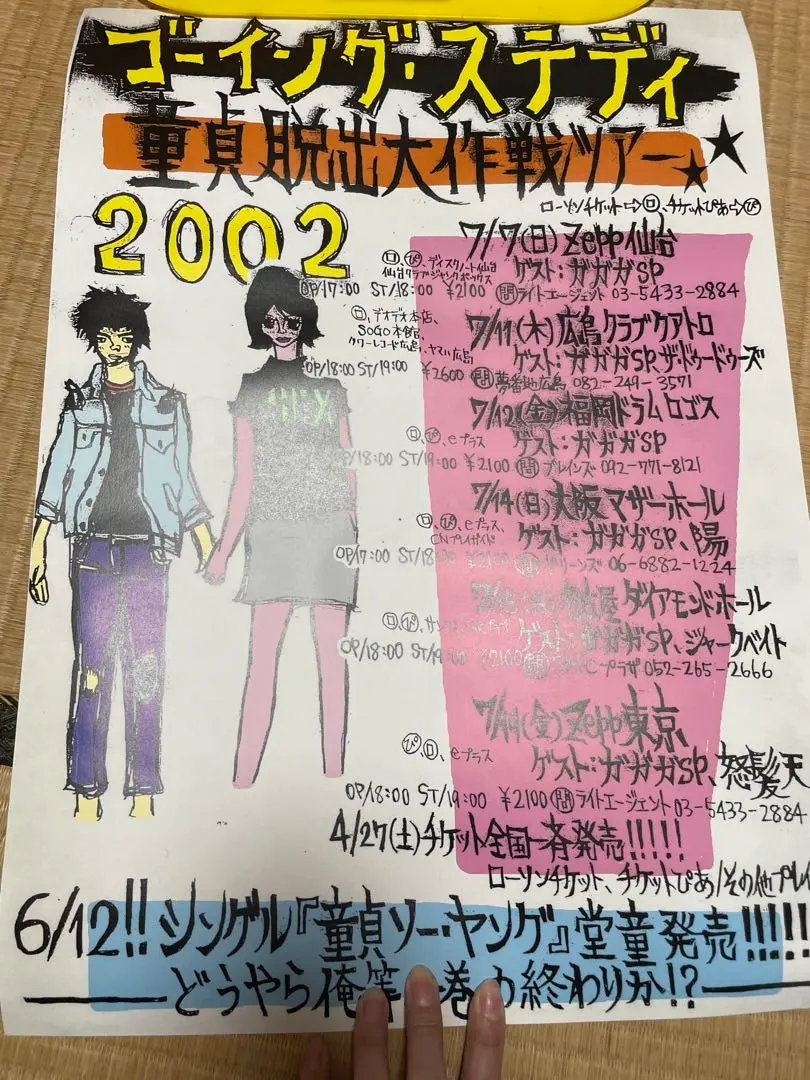 ゴーイング・ステディ
童貞脱出大作戦ツアー★★
2002
ローソンチケット⇨ロ、チケットぴあ⇨ぴ
7/7(日)Zepp仙台
ロ、ぴ、ディスクノート仙台
仙台クラブ・ジャンクボックス
ゲスト:ガガガSP
OP/17:00 ST/18:00 ¥2100 問ライトエージェント 03-5433-2884
7/11(木)広島クラブクアトロ
ロ、デオデオ本店、
SOGO本館、
タワーレコード広島、ヤマハ広島
ゲスト:ガガガSP、ザ・ドゥードゥーズ
OP/18:00 ST/19:00 ¥2600 問夢番地広島 082-249-3571
7/12(金)福岡ドラムロゴス
ロ、ぴ、eプラス
ゲスト:ガガガSP
OP/18:00 ST/19:00 ¥2100 問ブレインズ 092-771-8121
7/14(日)大阪マザーホール
ロ、ぴ、eプラス、
CNプレイガイド
ゲスト:ガガガSP、陽
OP/17:00 ST/18:00 ¥2100 問グリーンズ 06-6882-1224
名古屋 ダイアモンドホール
ロ、ぴ、
ゲスト:ガガガSP、ジャークベイト
OP/18:00 ST/19:00 ¥2100 問 プラザ 052-265-2666
7/19(金)Zepp東京
ぴ、ロ、eプラス
ゲスト:ガガガSP、怒髪天
OP/18:00 ST/19:00 ¥2100 問ライトエージェント 03-5433-2884
4/27(土)チケット全国一斉発売!!!!!
ローソンチケット、チケットぴあ/その他プレイ
6/12!! シングル『童貞ソー・ヤング』堂童発売!!!!!
どうやら俺等 巻 終わりか!?
SEX